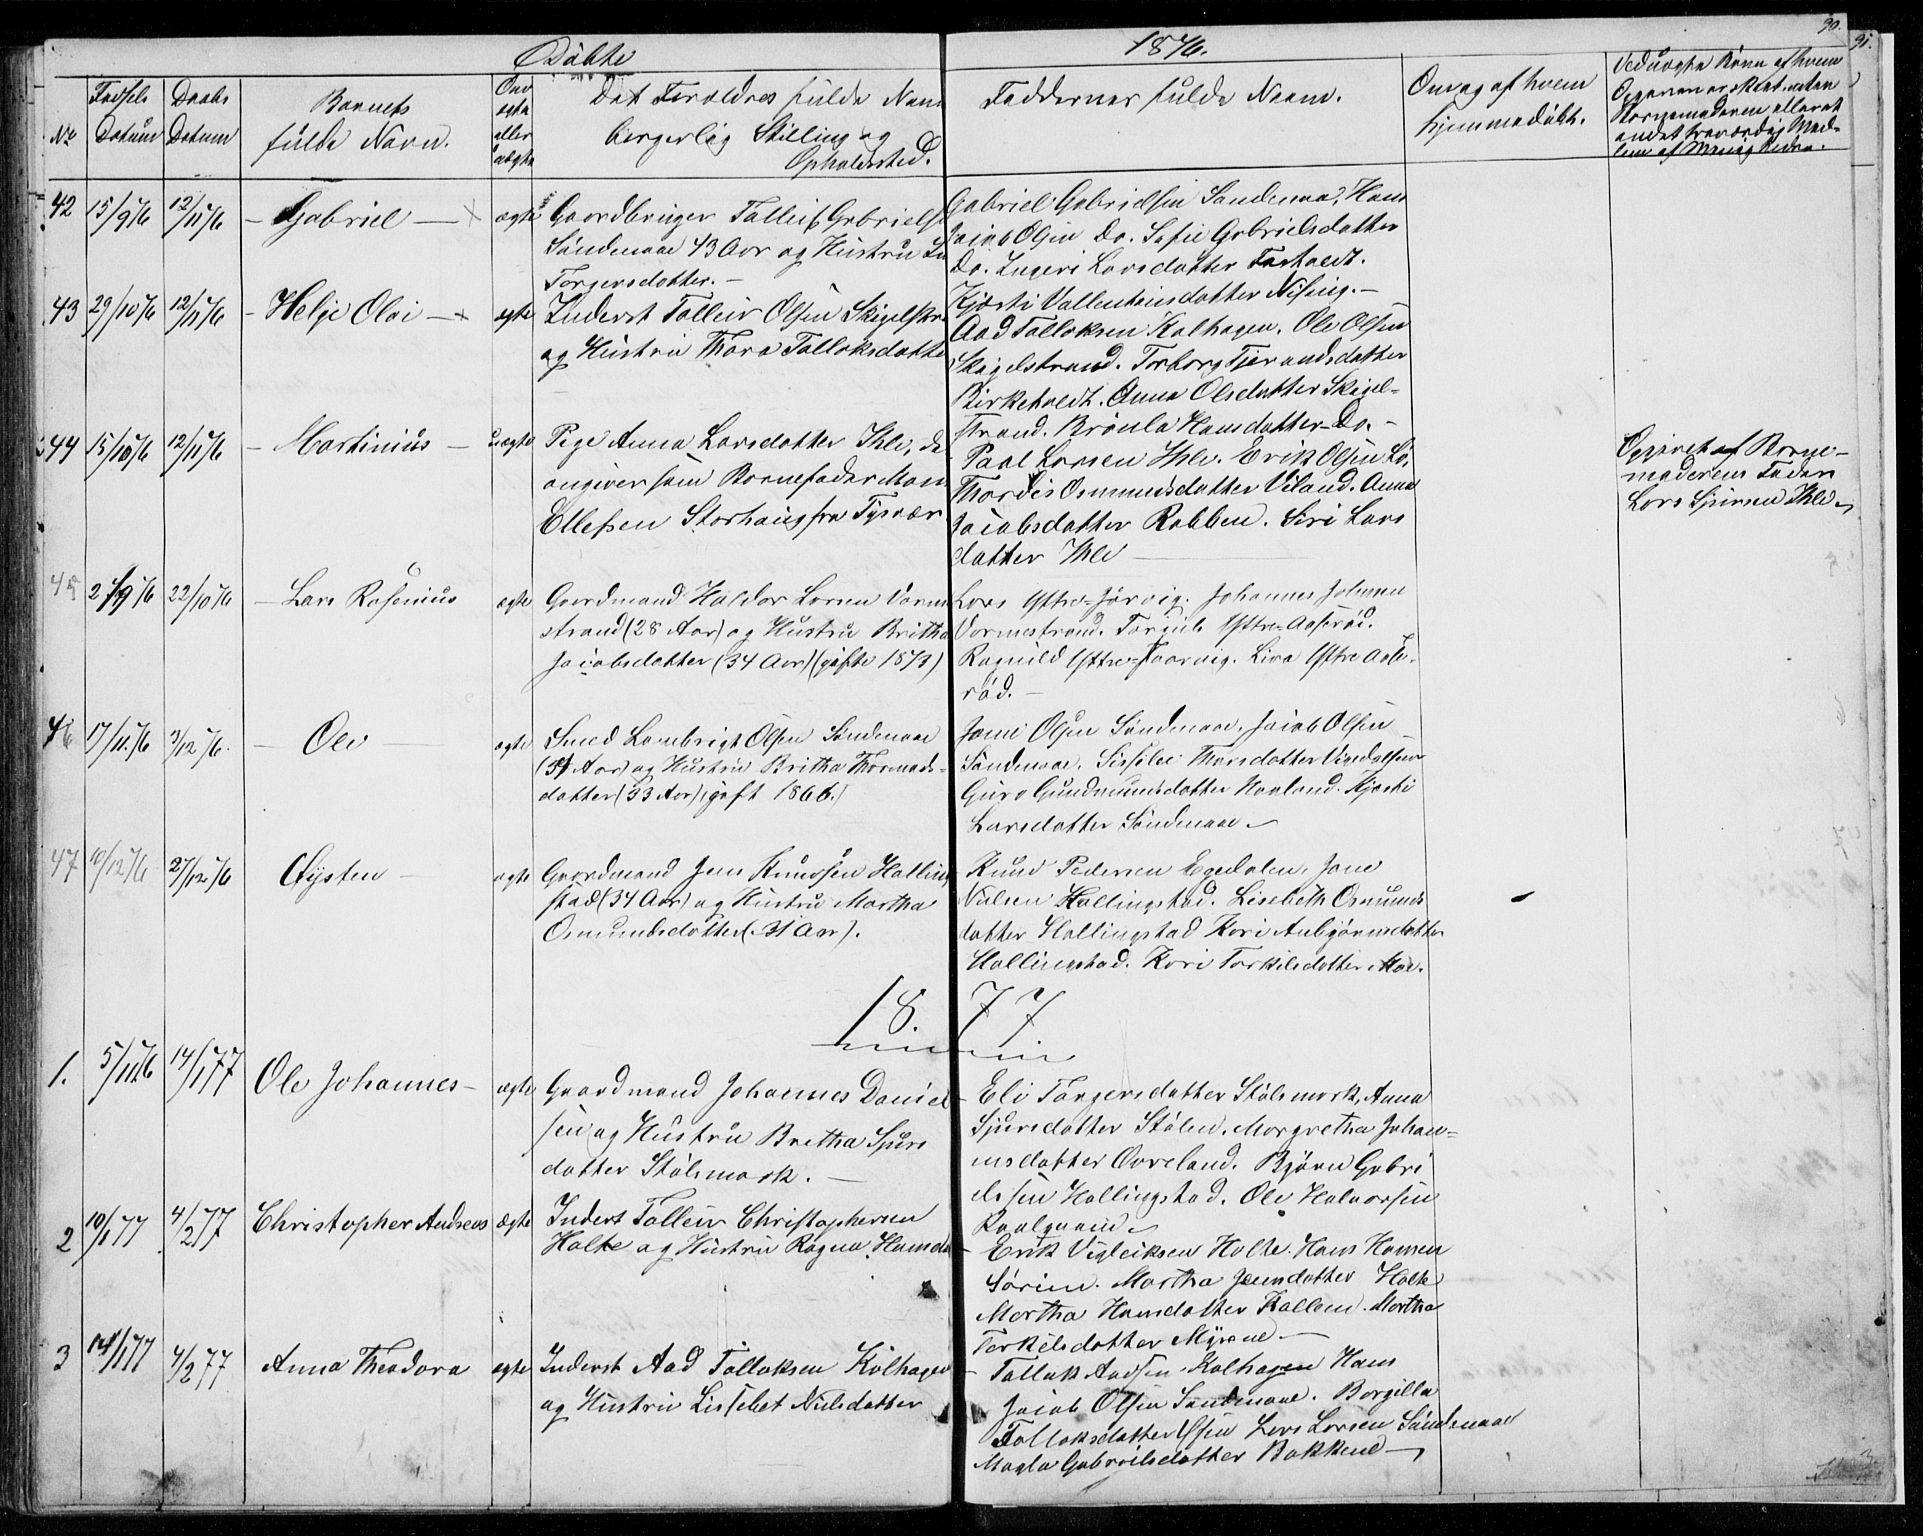 30.
91.
Döbte
1876.
No
Fødsels Datum
Daabs Datum
Barnets fulde Navn.
Om ægte eller uægte
Det Foraldres fulde Navn borgerlig Stilling og Opholdssted.
Faddernes fulde Navn.
Om og af hvem hjemmedøbt.
42 15/9 76 12/11 76 Gabriel ægte
Gaardbruger Talleif Gabriels
Söndenaae 43 Aar og Hustru
Torgersdatter.
Gabriel Gabrielsen Søndenaa, Hans
Jacob Olsen Do. Sofie Gabrielsdatter
Do. Ingeri Larsdatter
Kjersti Vallentinsdatter
43 29/10 76 12/11 76 Helje Olai ægte
Inderst Talleiv Olsen Skigelstr
og Hustru Thora Tallaksdatte
Aad Tallaksen Kolhagen. Ole Olsen
Skigelstrand. Torborg Tjerandsdatter
Birkeholdt. Anna Olsdatter Skigel-
strand. Brönla Hansdatter Do.
44 15/10 76 12/11 76 Martinius uægte
Pige Anna Larsdatter Ihle, der
angiver som Barnefader
Ellefsen Storhaug fra Tysvær
Paal Larsen Ihle. Erik Olsen Lö,
Thordis Osmundsdatter Viland. Anna
Jacobsdatter Robben. Siri Lars
datter Ihle
Opgivet af Barne-
moderens Fader
Lars Ihle
45 2/9 76 22/10 76 Lars Rasenius ægte
Gaardmand Haldor Larsen Varm
strand (28 Aar) og Hustru Britha
Jacobsdatter (34 Aar) (gifte 1873)
Lars Ystre-Jörvig. Johannes Johnsen
Varmestrand. Torgiils Ystre-Aaseröd.
Ragnild Ystre-Jaarvig. Liva Ystre Aase-
röd.
46 17/11 76 3/12 76. Olev ægte
Smed Lambrigt Olsen Söndenaae
(34 Aar) og Hustru Britha Thormods-
datter (33 Aar), gift 1866.)
Jone Olsen Söndenaae, Jacob Olsen
Söndenaae. Sissilie Thorsdatter
Guro Gundmundsdatter Hovland. Kjersti
Larsdatter Söndenaae
47 10/12 76 27/12 76 Eysten ægte
Gaardmand Jens Knudsen Halling
stad (34 Aar) og Hustru Martha
Osmundsdatter (31 Aar).
Knud Pedersen Egedalen, Jone
Nielsen Hallingstad. Lisebeth Osmunds
datter Hallingstad Kari Anbjörnsdatter
Hallingstad. Kari Torkilsdatter Moe.
18.77
1. 5/11 76 14/1 77 Ole Johannes ægte
Gaardmand Johannes Daniel
sen og Hustru Bretha Sjurs
datter Stölsmark.
Eli Torgersdatter Stölsmark, Anna
Sjursdatter Stölen. Margretha Johan-
nesdatter Ovreland. Björn Gabri
elsen Hallingstad. Ole Halvorsen
2 10/1 77 4/2 77 Christopher Andreas ægte
Inderst Talleiv Christophersen
Holte og Hustru Ragna Hansda
Erik Vigleiksen Holte. Hans Hansen
Sörine. Martha Jensdatter Holte
Martha Hansdatter Kallem. Martha
Terkelsdatter Myrene
3 14/1 77 4/2 77 Anna Theodora ægte
Inderst Aad Tallaksen Kolhagen
og Hustru Lissebet Nielsdatter
Tallak Aadsen Kolhagen Hans
Jacob Olsen Søndenaae. Borgilla
Tallaksdatter Lars Larsen Söndenaae
Magla Gabrielsdatter Bakkene